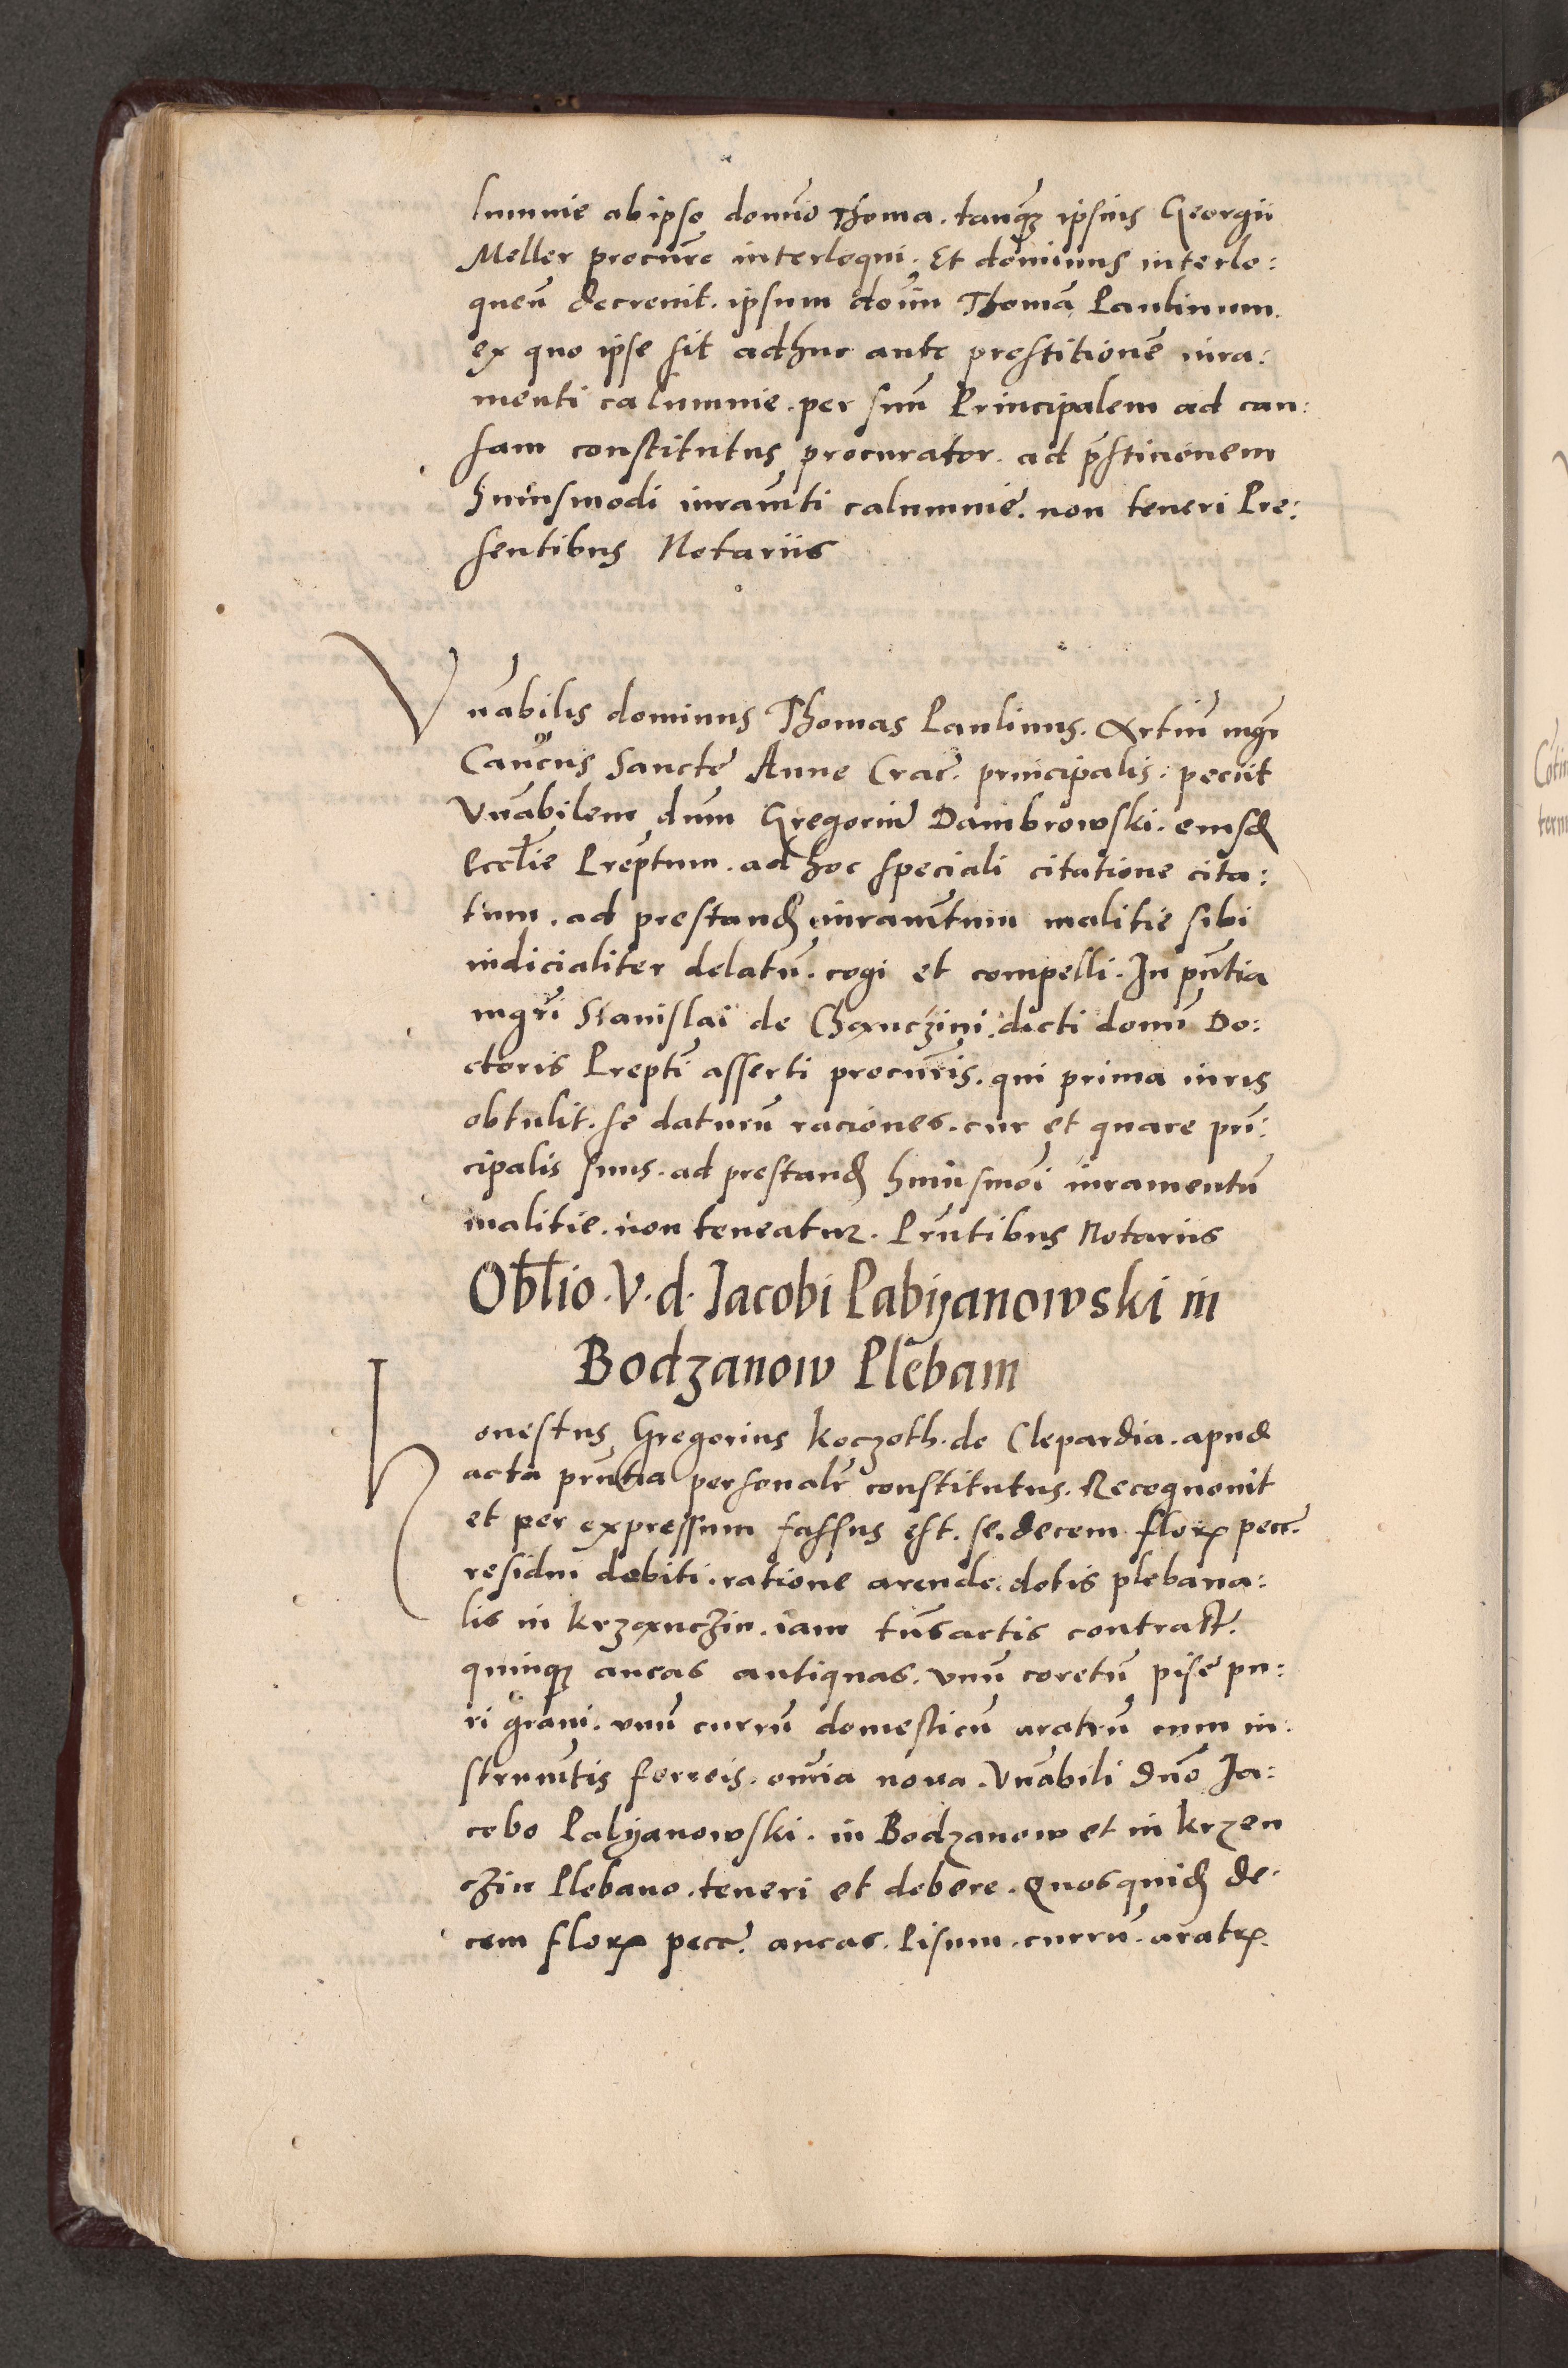 lumnie ab ipso domīo Thoma. tanq̃ȝ ipsius Georgii
Meller procurẽ interloqui. Et dominus interlo:
queñ decrevit. ipsum dom̃ Thomã Paulinum.
ex quo ipse sit adhuc ante prestitionẽ iura:
menti calumnie. per suũ Principalem ad cau:
sam constitutus procurator. ad p̃sticionem
huiusmodi iuram̃ti calumnie. non teneri Pre:
sentibus Notariis
Vñabilis dominus Thomas Paulinus. Artiũ mg̃r
Cañcus Sancte Anne Crac̃. principalis. peciit
Vñabilem dñm Gregoriũ Dambrowski. eiusd
Eccl̃ie Prep̃tum. ad hoc speciali citatione cita:
tum. ad prestand iuram̃tum malitie sibi
iudicialiter delatũ. cogi et compelli. In pñtia
mgr̃i Stanislai de Chanczini. dicti domĩ Do:
ctoris Prep̃ti asserti procur̃is. qui prima iuris
obtulit. se daturũ raciones. cur et quare prĩ:
cipalis suus. ad prestand huiusmõi iuramentũ
malitie. non teneatur. Prñtibus Notariis
Obl̃io. V. d. Jacobi Pabijanowski in
Bodzanow Plẽbani
Honestus Gregorius Koczoth. de Clepardia. apud
acta prñtia personalr̃ constitutus. Recognovit
et per expressum fassus est. se. decem florꝝ pecc̃.
residui debiti. ratione arende. dotis plebana:
lis in Krzanczin. iam trñsactis contract̃.
quinqȝ aucas antiquas. vnũ coretũ pise pu:
ri grani. vnũ currũ domesticũ aratrũ cum in:
strum̃tis ferreis. om̃ia nova. Vñabili dño Ja:
cobo Pabijanowski. in Bodzanow et in Krzen
czin Plebano. teneri et debere. Quosquid de:
cem florꝝ pecc̃. aucas. Pisum. currũ. aratꝝ.